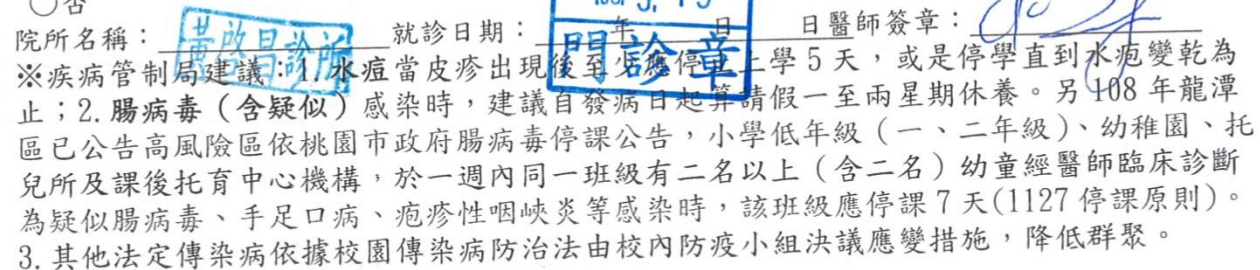 ○否
院所名稱：黃啟昌診所 就診日期： 年 日 日醫師簽章：
門診章
※疾病管制局建議：1.水痘當皮疹出現後至少應停止上學5天，或是停學直到水疱變乾為
止；2.腸病毒（含疑似）感染時，建議自發病日起算請假一至兩星期休養。另108年龍潭
區已公告高風險區依桃園市政府腸病毒停課公告，小學低年級（一、二年級）、幼稚園、托
兒所及課後托育中心機構，於一週內同一班級有二名以上（含二名）幼童經醫師臨床診斷
為疑似腸病毒、手足口病、疱疹性咽峽炎等感染時，該班級應停課7天(1127停課原則)。
3.其他法定傳染病依據校園傳染病防治法由校內防疫小組決議應變措施，降低群聚。